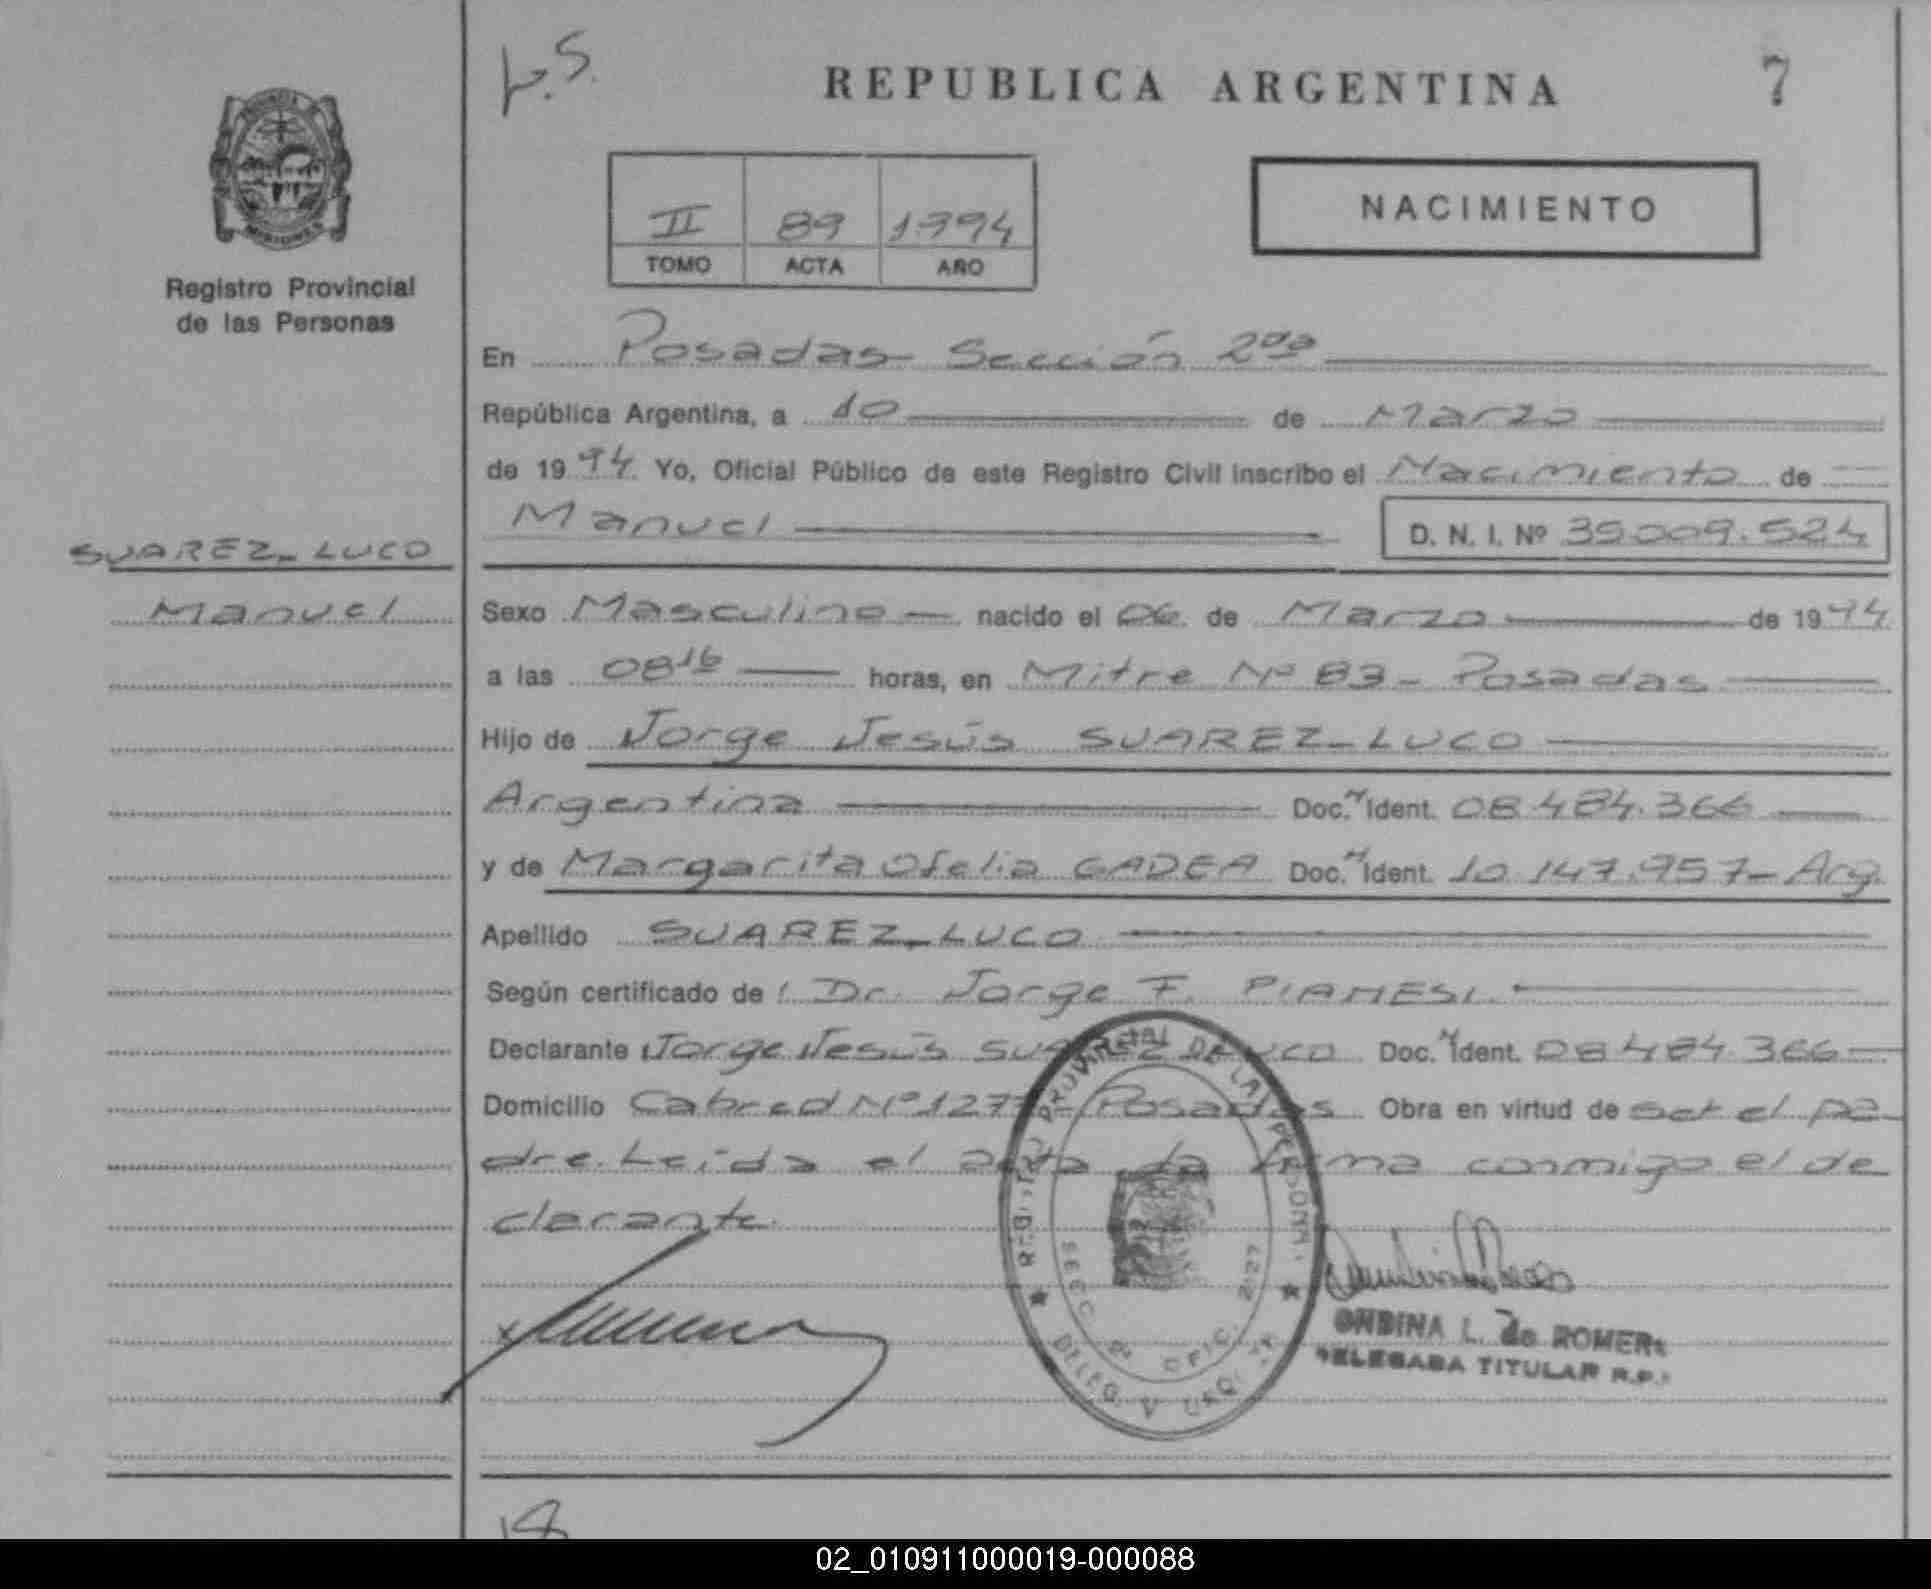 L.S.
REPUBLICA ARGENTINA
7
II 89 1994
TOMO ACTA AÑO
NACIMIENTO
Registro Provincial
de las Personas
En Posadas - Sección 2da
República Argentina, a 10 de Marzo
de 1994 Yo, Oficial Público de este Registro Civil inscribo el Nacimiento de
Manuel D. N. I. Nº 39.009.524
SUAREZ-LUCO
Manuel
Sexo Masculino - nacido el 06 de Marzo de 1994
a las 08 16 horas, en Mitre Nº 83 - Posadas
Hijo de Jorge Jesús SUAREZ-LUCO
Argentina Doc. N Ident. 08.484.366
y de Margarita Ofelia GADEA Doc. N Ident. 10.147.957 - Arg.
Apellido SUAREZ-LUCO
Según certificado de : Dr. Jorge F. PIAMESI
Declarante Jorge Jesús SUAREZ LUCO Doc. N Ident. 08.484.366
Domicilio Cabred Nº Posadas Obra en virtud de ser el pa-
dre. Leida el acta la firma conmigo el de
clarante.
REGISTRO PROVINCIAL DE LAS PERSONAS
SECC. 2ª OFIC. 2127
DELEG. V. URQUIZA
ONDINA L. de ROMERO
DELEGADA TITULAR R.P.
18
02_010911000019-000088